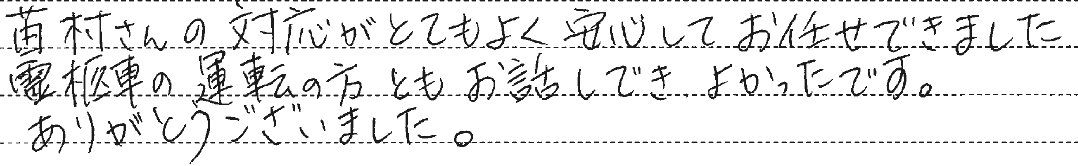 苗村さんの対応がとてもよく安心してお任せできました
霊柩車の運転の方ともお話しでき よかったです。
ありがとうございました。